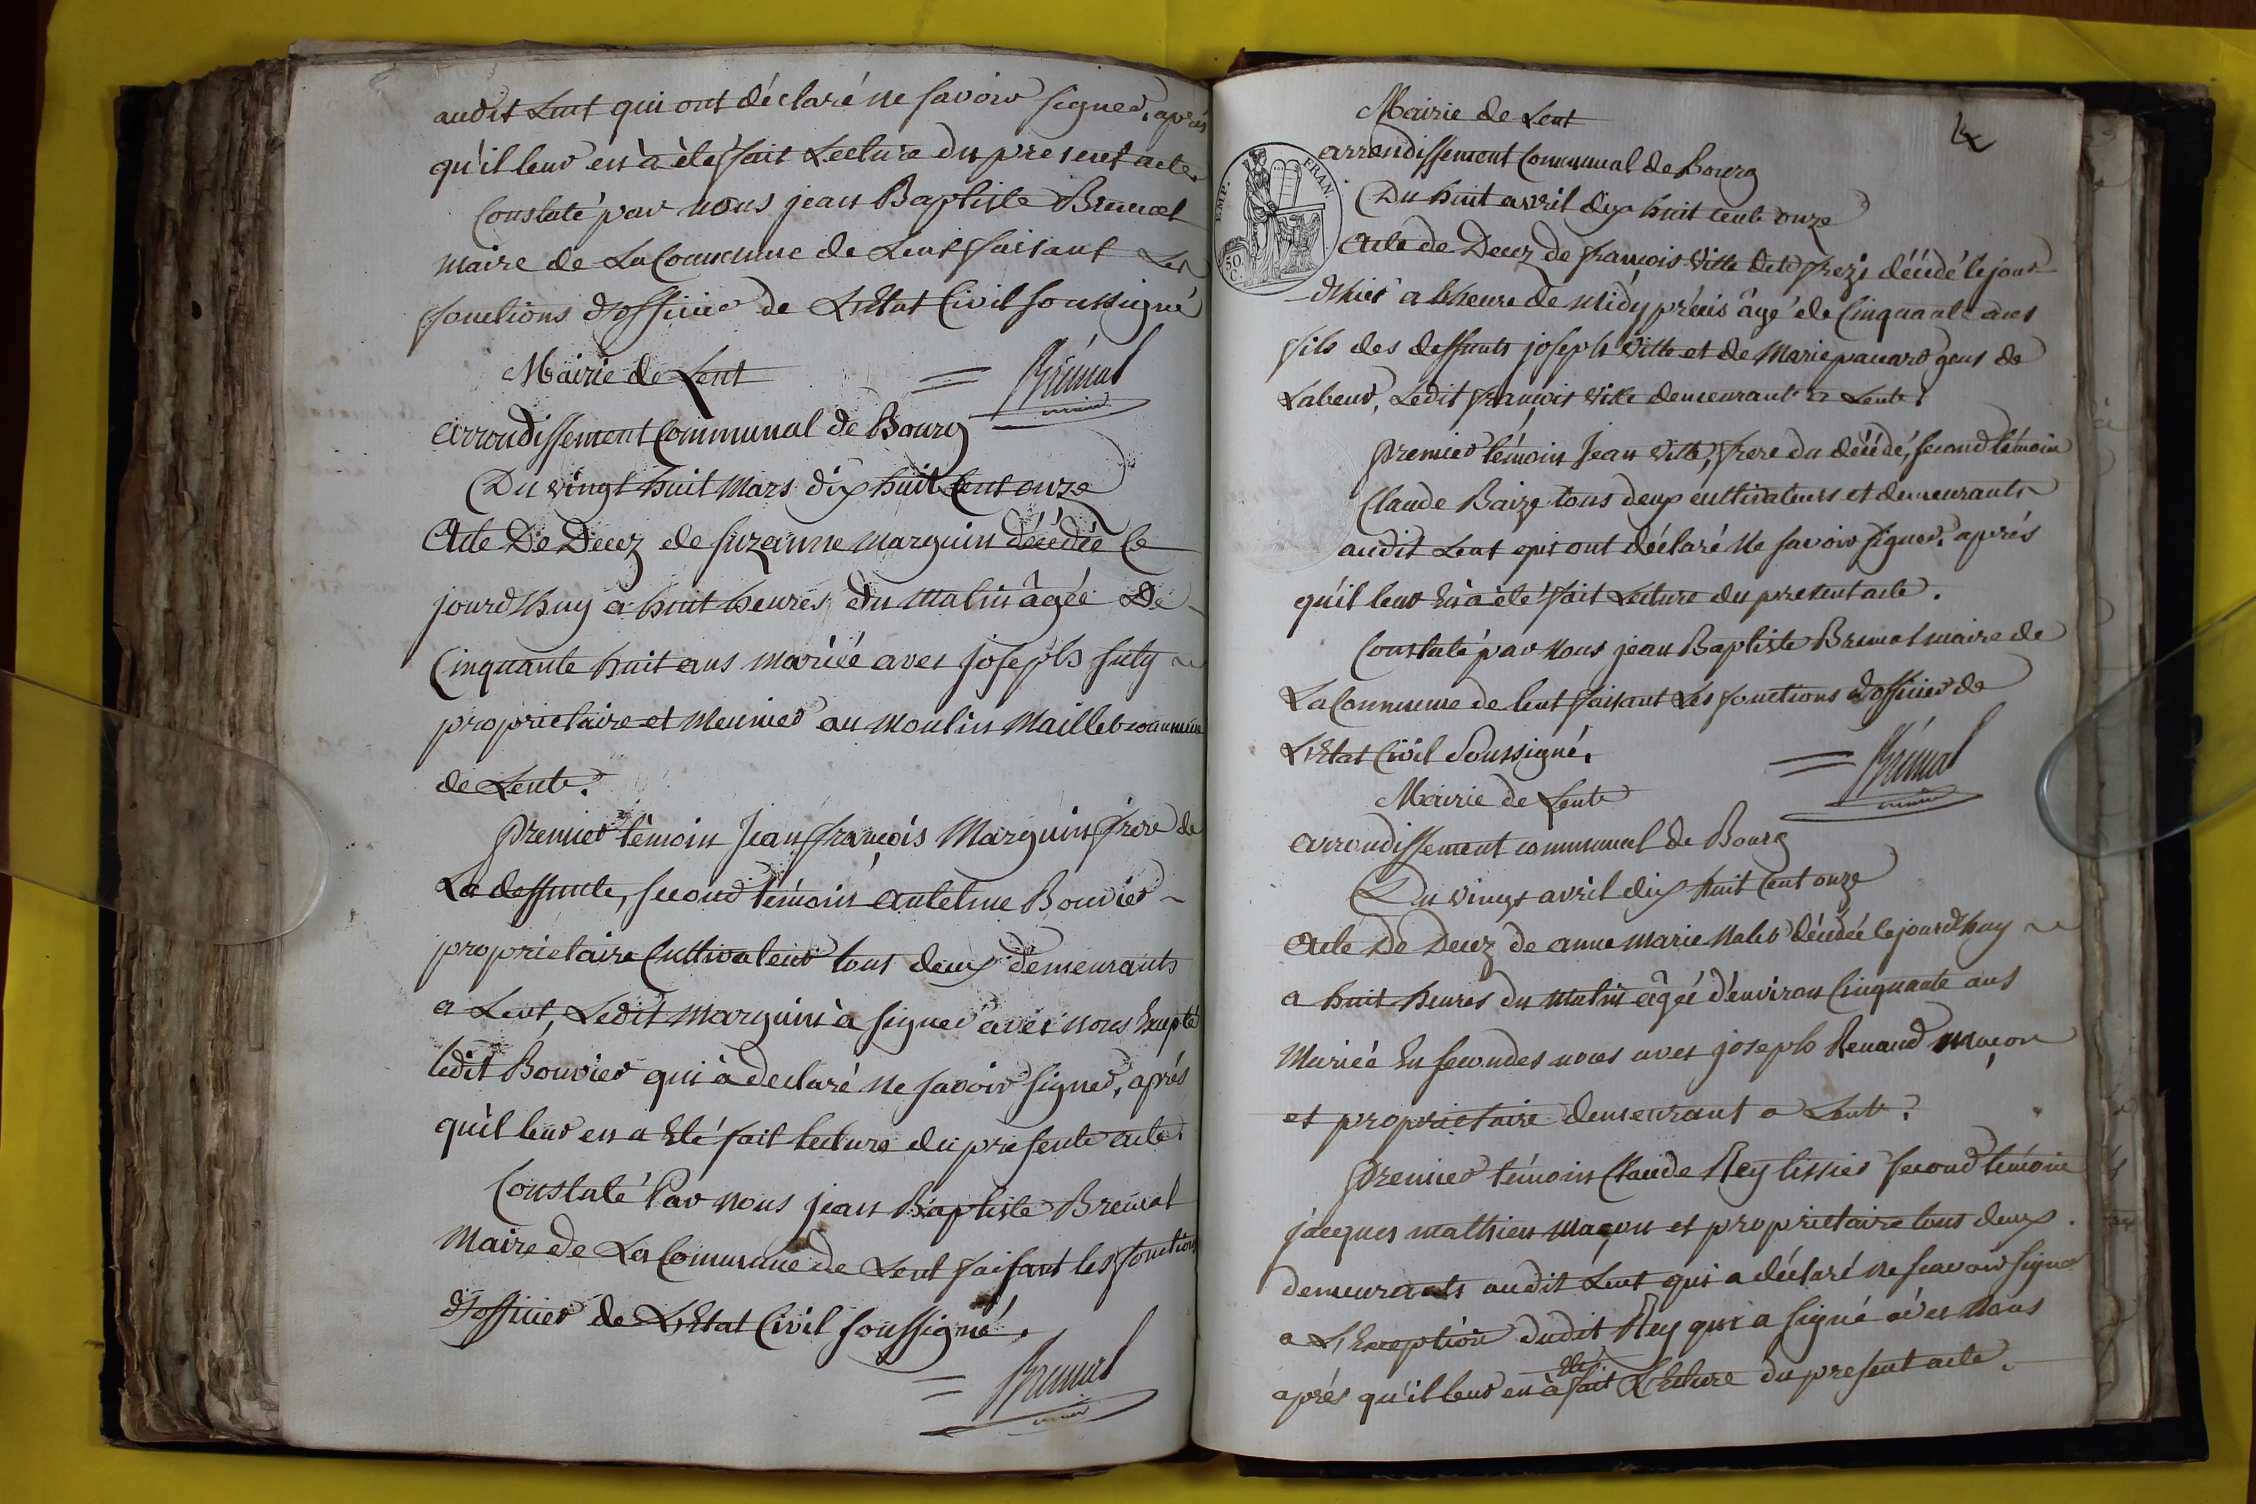 audit Lent qui ont déclaré ne savoir signer, aprés
qu'il leur en à été fait Lecture du present acte.
Constaté par nous jean Baptiste Brémal
maire de La Commune de Lent faisant Les
fonctions d'officier de L'Etat Civil soussigné
= Brémal
maire
Mairie de Lent
arrondissement Communal de Bourg
Du vingt huit Mars dix huit Cent onze
Acte De Decez de suzanne marguin décédée le
jourd'huy a huit heures du matin âgée De
Cinquante huit ans mariée avec joseph
proprietaire et Meunier au Moulin Maillet commune
de Lent.
premier témoin Jean françois Marguin frere de
La deffunte, second témoin antelme Bouvier
proprietaire Cultivateur tous deux demeurants
a Lent, Ledit marguin à signer avec nous Excepté
ledit Bouvier qui à declaré ne savoir signer, aprés
qu'il leur en a Eté fait lecture du presente acte.
Constaté Par nous jean Baptiste Brémal
Maire de La Commune de Lent faisant les fonctions
d'officier de L'Etat Civil soussigné.
= Brémal
maire
Mairie de Lent
arrondissement Communal de Bourg
EMP. FRAN.
50
C.
Du huit avril dix huit cent onze
Acte de Decez de françois Ville décédé le jour
d'hier a l'heure de Midy précis âgé de Cinquante ans
fils des deffunts joseph Ville et de Marie pauard gens de
Labeur, Ledit françois Ville demeurant a Lent.
premier témoin Jean Ville, frere du décédé, second témoin
Claude Baize tous deux cultivateurs et demeurants
audit Lent qui ont déclaré Ne savoir signer, aprés
qu'il leur En à été fait Lecture du present acte.
Constaté par nous jean Baptiste Brémal maire de
La Commune de lent faisant Les fonctions d'officier de
L'Etat Civil Soussigné.
= Brémal
maire
Mairie de Lent
arrondissement communal de Bourg
Du vingt avril dix huit Cent onze
Acte De Decez de anne marie décédée le jourd'huy
a huit heures du Matin âgée d'environ Cinquante ans
Mariée En secondes noces avec joseph Renaud Maçon
et proprietaire demeurant a Lent.
premier témoin Claude Rey tissier second témoin
jacques mathieu Maçon et proprietaire tous deux
demeurants audit Lent qui a déclaré ne scavoir signer
a L'Exception dudit Rey qui a signé avec Nous
aprés qu'il leur en à été fait Lecture du present acte.